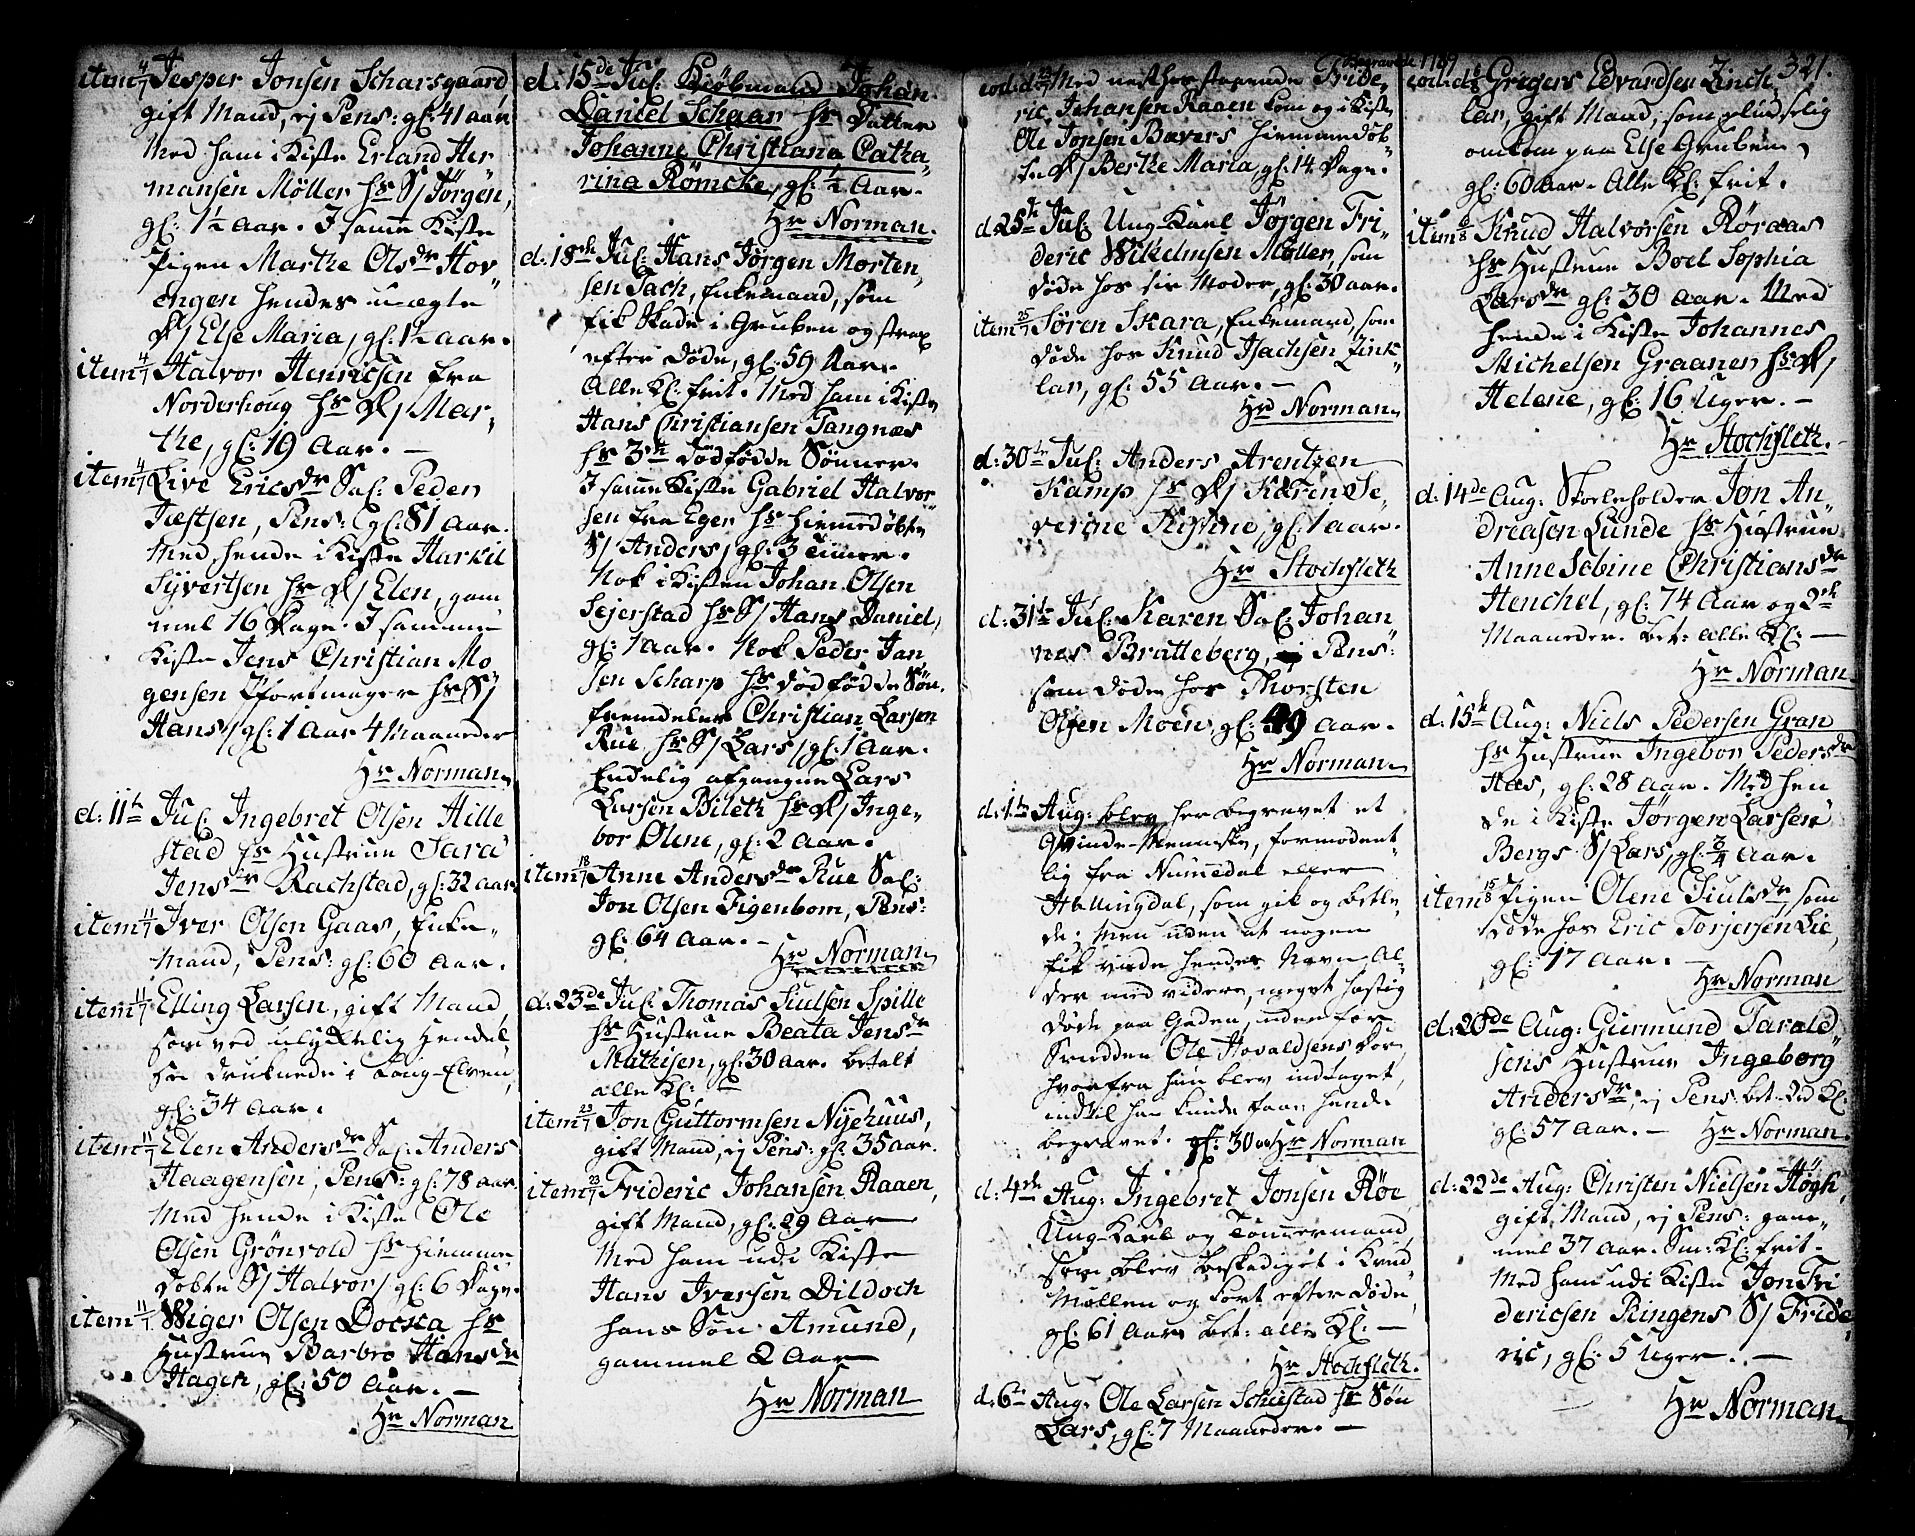 item 4/7 Jesper Jonsen Scharsgaard
gift Mand, ej Pens: gl: 41 aar
Med ham i Kiste Erland Her
mansen Møller hs S/ Jørgen,
gl: 1½ aar. I samme Kiste
Pigen Marthe Olsdr Hov
engen hendes uægte
D/ Else Maria, gl: 1½ aar.
item 4/7 Halvor Henricsen fra
Norderhoug hs D/ Mar,
the, gl: 19 aar. —
item 4/7 Live Ericsdr Sal: Peder
Jæstsen, Pens: gl: 81 aar.
Med hende i Kiste Harkil
Syvertsen hs D/ Elen, gam
mel 16 Dage. I samme
Kiste Jens Christian Mo
gensen hs S/
Hans, gl: 1 Aar 4 Maaneder
Hr Norman
d: 11te Jul: Ingebret Olsen Hille
stad hs Hustrue Sara
Jensdr Rachstad, gl: 32 aar
item 11/7 Iver Olsen Gaas, Enke,
Mand, Pens: gl: 60 aar.
item 11/7 Elling Larsen, gift Mand,
som ved ulykkelig Hendel,
se druknede i Laug-Elven,
gl: 34 aar.
item 11/7 Elen Andersdr Sal: Anders
Haagensen, Pens: gl: 78 aar.
Med hende i Kiste Ole
Olsen Grönvold hs hiemme
døbte S/ Halvor, gl: 6 Dage.
item 11/7 Wiger Olsen Docka hs
Hustrue Barbro Hansdr
Hagen, gl: 50 aar. —
Hr Norman
d: 15de Jul: Kiøbmand Johan
Daniel Schaar hs Datter
Johanne Christiana Catha,
rina Römcke, gl: ½ Aar.
Hr Norman.
d: 18de Jul: Hans Jørgen Morten,
sen Tach, Enkemand, som
fik Skade i Gruben og strax
efter døde, gl: 59 Aar.
Alle Kl: frit. Med ham i Kiste
Hans Christiansen Tangnæs
hs 3de dødfødde Sønner.
I samme Kiste Gabriel Halvor
sen fra Eger hs hiemmedøbte
S/ Anders, gl: 3 Timer.
Nok i Kisten Johan Olsen
Sejerstad hs S/ Hans Daniel,
gl: 1 aar. Nok Peder Jan
sen Scharp hs dødfødde Søn.
fremdeles Christian Larsen
Rue, hs S/ Lars, gl: 1 Aar.
Endelig afgangne Lars
Larsen Bileth hs D/ Inge,
bor Olene, gl: 2 Aar.
item 18/7 Anne Andersdr Rue Sal:
Jon Olsen Figenbom, Pens:
gl: 64 Aar. —
Hr Norman
d: 23de Jul: Thomas Juulsen Spille
hs Hustrue Beata Jensdr
Mathisen, gl: 30 aar. betalt
alle Kl:
item 23/7 Jon Guttormsen Nyehuus,
gift Mand, ej Pens: gl: 35 aar.
item 23/7 Frideric Johansen Raaen,
gift Mand, gl: 29 Aar
Med ham udi Kiste
Hans Iversen Dildoch
hans Søn Amund,
gammel 2 Aar
Hr Norman
Begravede 1789
321.
eod: d: 23/7 Med nesthosstaaende Fride,
ric Johansen Raaen kom og i Kiste
Ole Jonsen Bævers hiemmedøb
te D/ Berthe Maria, gl: 14 Dage.
d: 25te Jul: Ung-Karl Jørgen Fri,
deric Wilhelmsen Møller, som
døde hos sin Moder, gl: 30 aar.
item 25/7 Søren Skara, Enkemand, som
døde hos Knud Isachsen Zink
lar, gl: 55 Aar. —
Hr Norman
d: 30te Jul: Anders Arentzen
Kamp hs D/ Karen Se,
verine Kistine, gl: 1 aar.
Hr Stochfleth
d: 31te Jul: Karen Sal: Johan
nes Bratteberg, Pens:
som døde hos Thorsten
Olsen Moen, gl: 49 aar.
Hr Norman
d: 1te Aug: blev her begravet et
Qvinde-Menniske, formodent,
lig fra Numedal eller
Hallingdal, som gik og betle,
de; Men uden at nogen
fik vide hendes Navn, Al,
der med videre, meget hastig
døde paa Gaden, uden for
Snedker Ole Hovaldsens Dør,
hvorfra hun blev indtaget,
indtil han kunde faae hende
begravet. gl: 30 aar Hr Norman
d: 4de Aug: Ingebret Jonsen Røe
Ung-Karl og Tømmermand,
som blev beskadiget i Knud
Møllen og kort efter døde,
gl: 61 Aar. bet: alle Kl: —
Hr Stochfleth.
d: 6te Aug: Ole Larsen Scheistad hs Søn
Lars, gl: 7 Maaneder. —
eod: d: 6/8 Grigers Edvardsen Zinch,
lar, gift Mand, som pludselig
omkom paa Else Gruben,
gl: 60 aar. Alle Kl: frit.
item 6/8 Knud Halvorsen Röraas
hs Hustrue Boel Sophia
Larsdr gl: 30 aar. Med
hende i Kiste Johannes
Michelsen Graaner hs D/
Helene, gl: 16 Uger. —
Hr Stochfleth.
d: 14de Aug: Skoleholder Jon An,
dreasen Lunde hs Hustrue
Anne Sebine Christiansdr
Henchel, gl: 74 Aar og 2de
Maaneder. bet: alle Kl: —
Hr Norman
d: 15de Aug: Niels Pedersen Gran
hs Hustrue Ingebor Pedersdr
Has, gl: 28 aar. Med hen
de i Kiste Jørgen Larsen
Bergs S/ Lars, gl: ¾ Aar.
item 15/8 Pigen Olene Juulsdr som
døde hos Eric Torjersen Lie,
gl: 17 aar. —
Hr Norman
d: 20de Aug: Giermund Tarald,
sens Hustrue Ingeborg
Andersdr, ej Pens: bet: 2d Kl:
gl: 57 aar. — Hr Norman.
d: 22de Aug: Christen Nielsen Høgh,
gift Mand, ej Pens: gam,
mel 37 aar. Sm: Kl: frit.
Med ham udi Kiste Jon Fri
dericsen Ringens S/ Fride
ric, gl: 5 Uger. —
Hr Norman